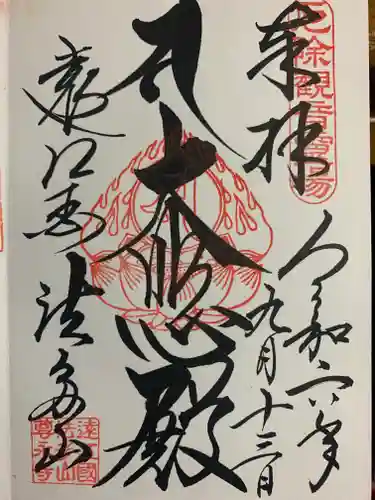 厄除観音霊場
奉拝
令和六年
九月十三日
大悲殿
遠江国
法多山
遠國
法山
尊永寺